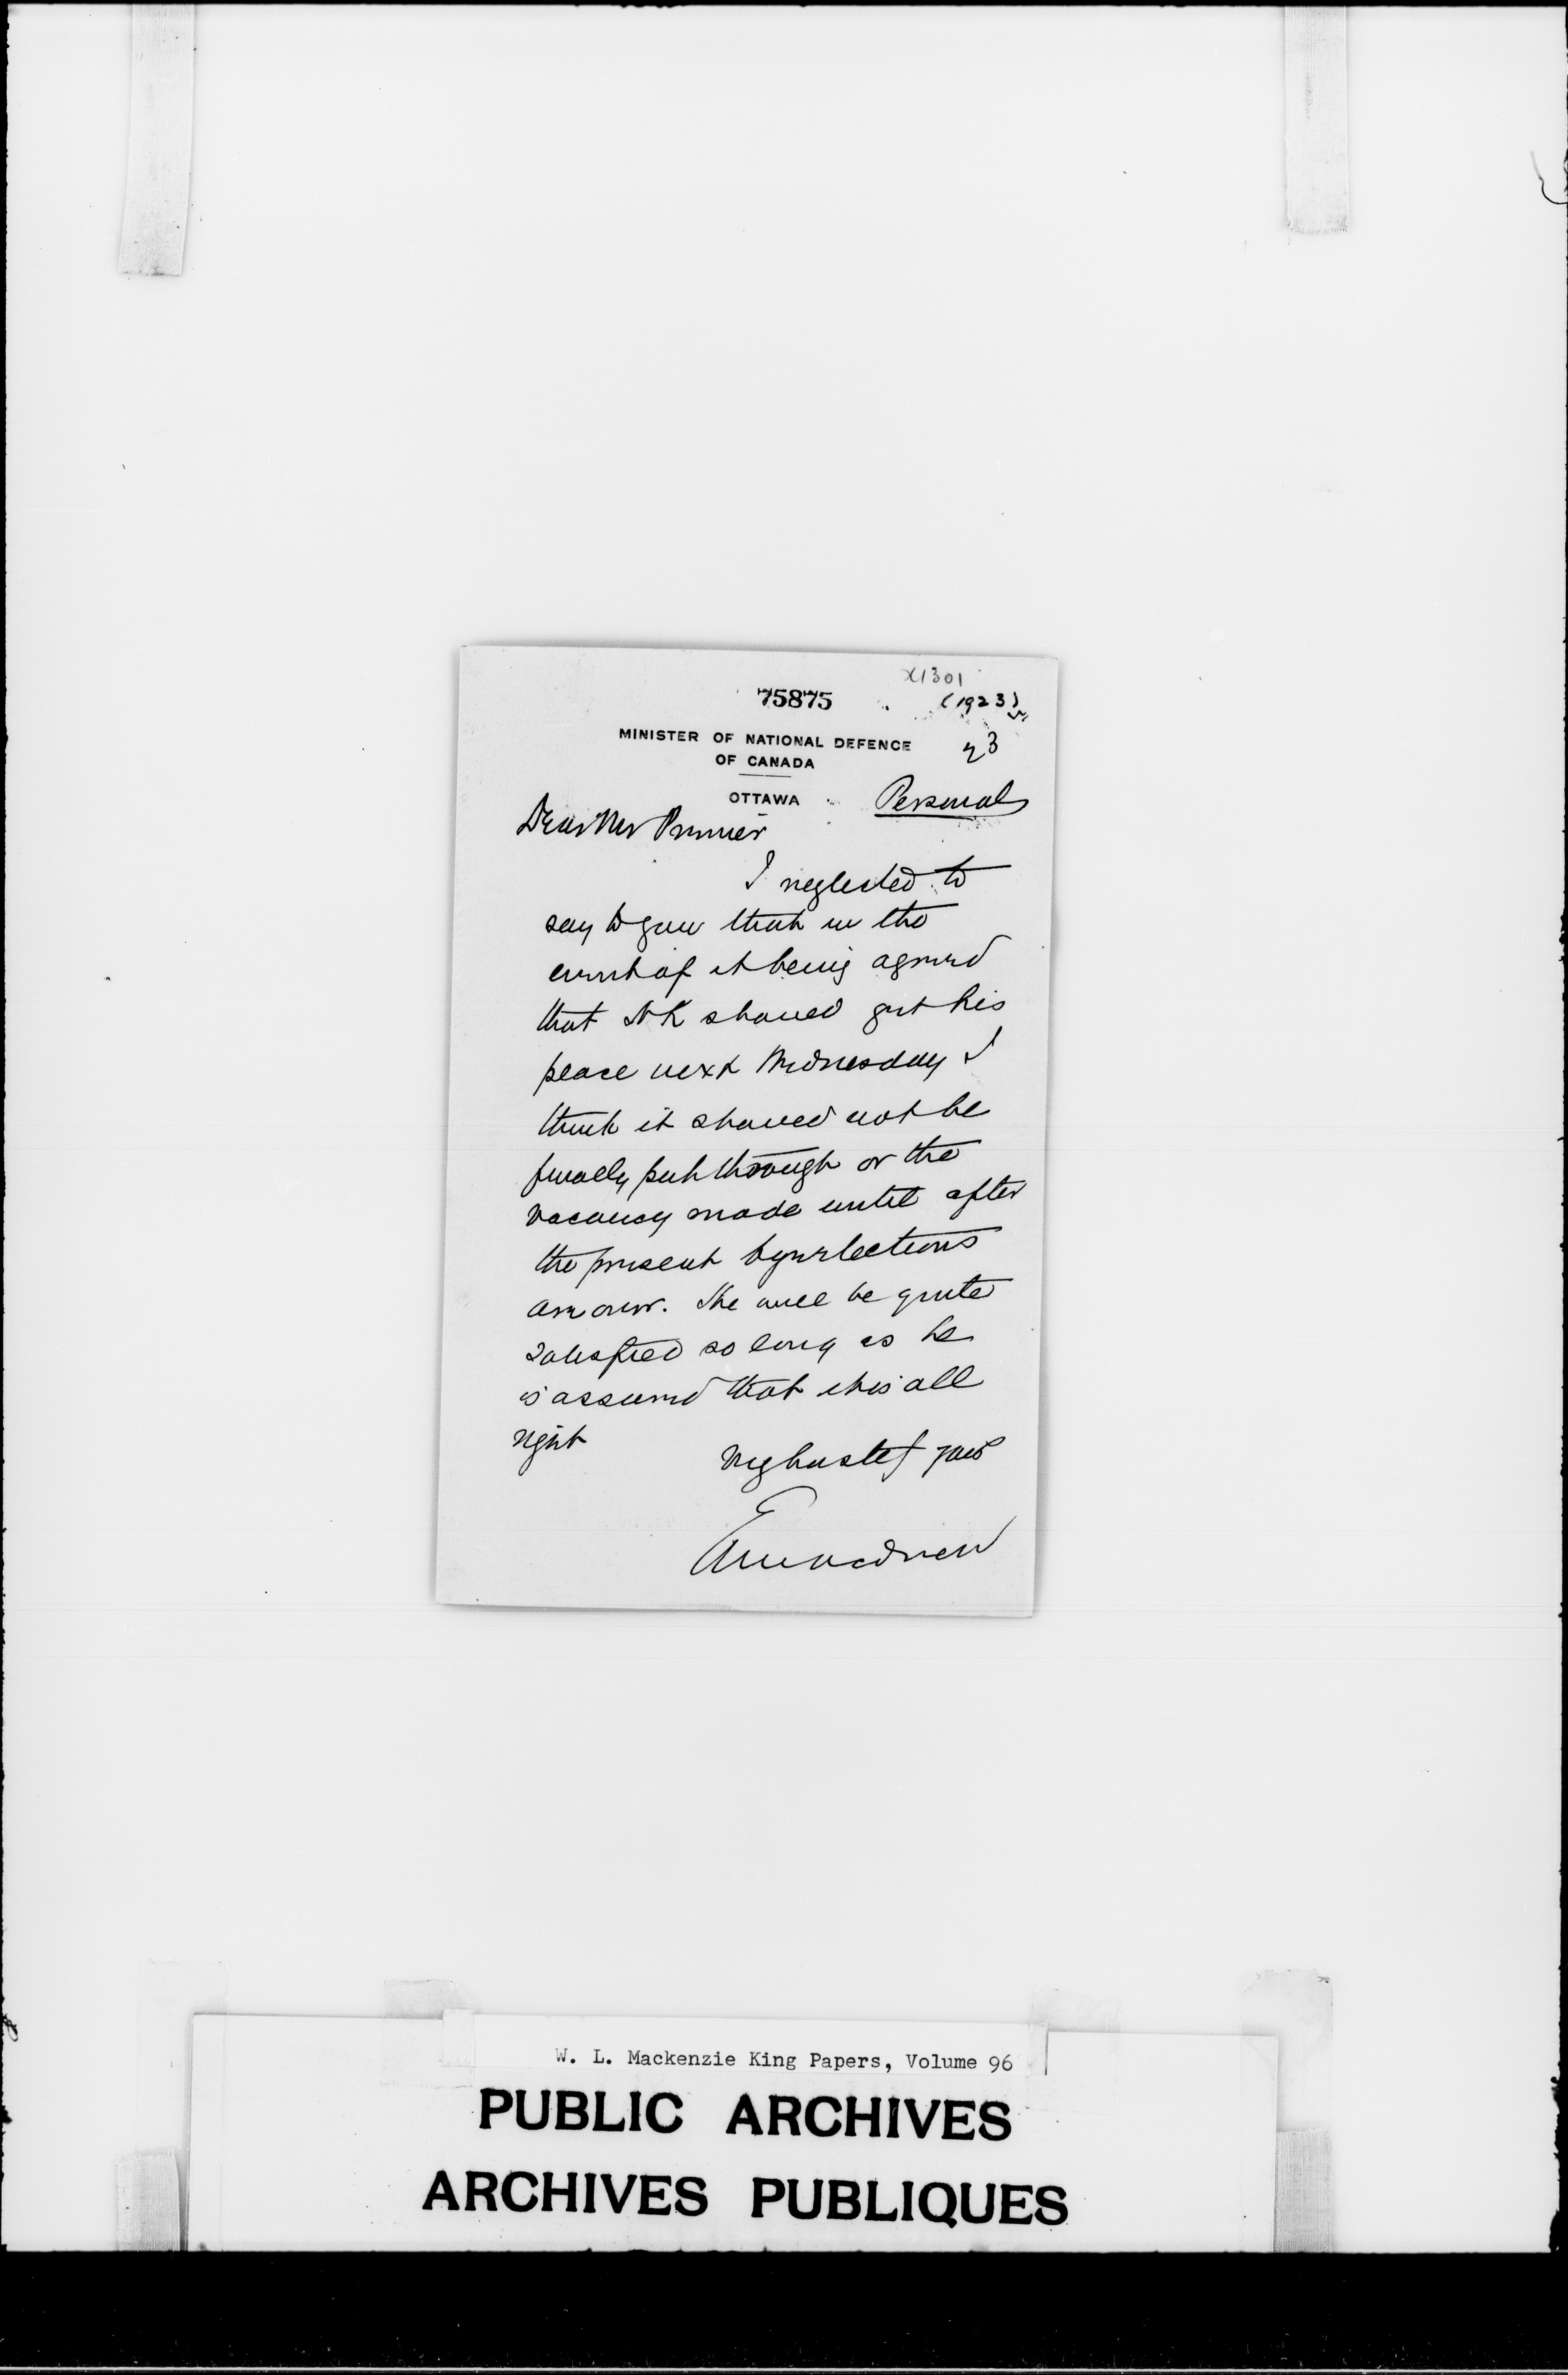 X1301
75875 (1923)
MINISTER OF NATIONAL DEFENCE 23
OF CANADA
OTTAWA Personal
Dear Mr Premier
I neglected to
say to you that in the
event of it being agreed
that should get his
place next Wednesday I
think it should not be
finally put through or the
vacancy made until after
the present byeelections
are over. He will be quite
satisfied so long as he
is assured that it is all
right
yours
W. L. Mackenzie King Papers, Volume 96
PUBLIC ARCHIVES
ARCHIVES PUBLIQUES